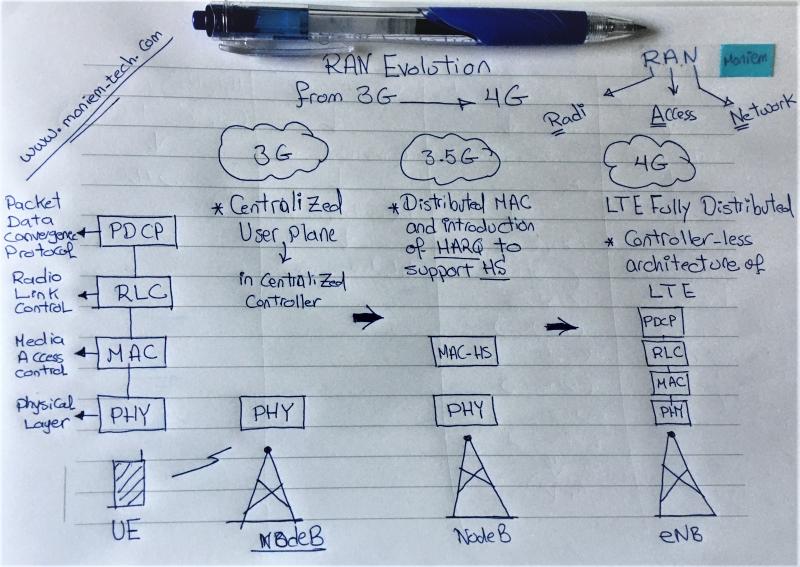 www.moniem-tech.com
RAN Evolution
from 3G → 4G
RAN
Moniem
Radi
Access
Network
3G
* Centralized
User plane
↓
in Centralized
Controller
3.5G
* Distributed MAC
and introduction
of HARQ to
support HS
4G
LTE Fully Distributed
* Controller-less
architecture of
LTE
Packet
Data
Convergence
Protocol
PDCP
Radio
Link
Control
RLC
Media
Access
Control
MAC
Physical
Layer
PHY
PHY
MAC-HS
PHY
PDCP
RLC
MAC
PHY
UE
NodeB
NodeB
eNB